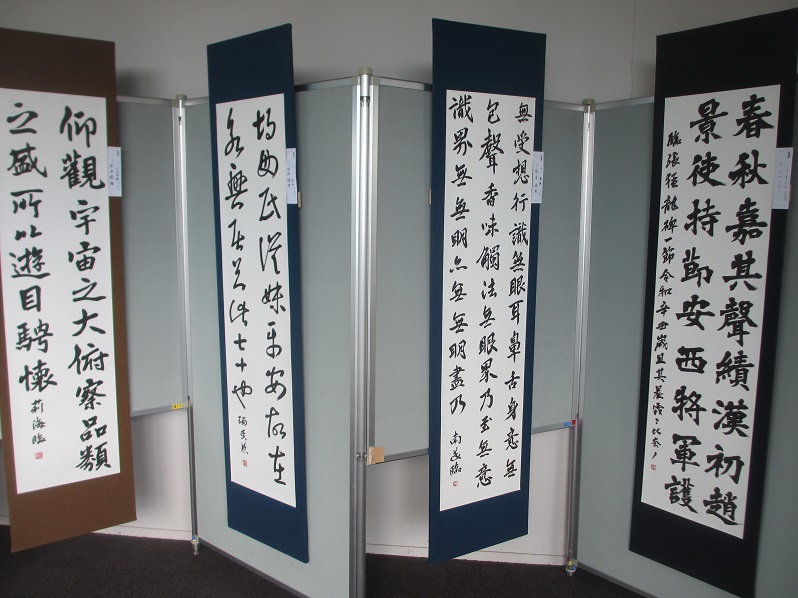 春秋嘉其聲績漢初趙
景使持節安西將軍護
臨張猛龍碑一節令和辛丑歲旦其晨
無受想行識無眼耳鼻舌身意無
色聲香味觸法無眼界乃至無意
識界無無明亦無無明盡乃
胡母氏從妹平安故在
永興居去此七十也
仰觀宇宙之大俯察品類
之盛所以遊目騁懷 莉海臨